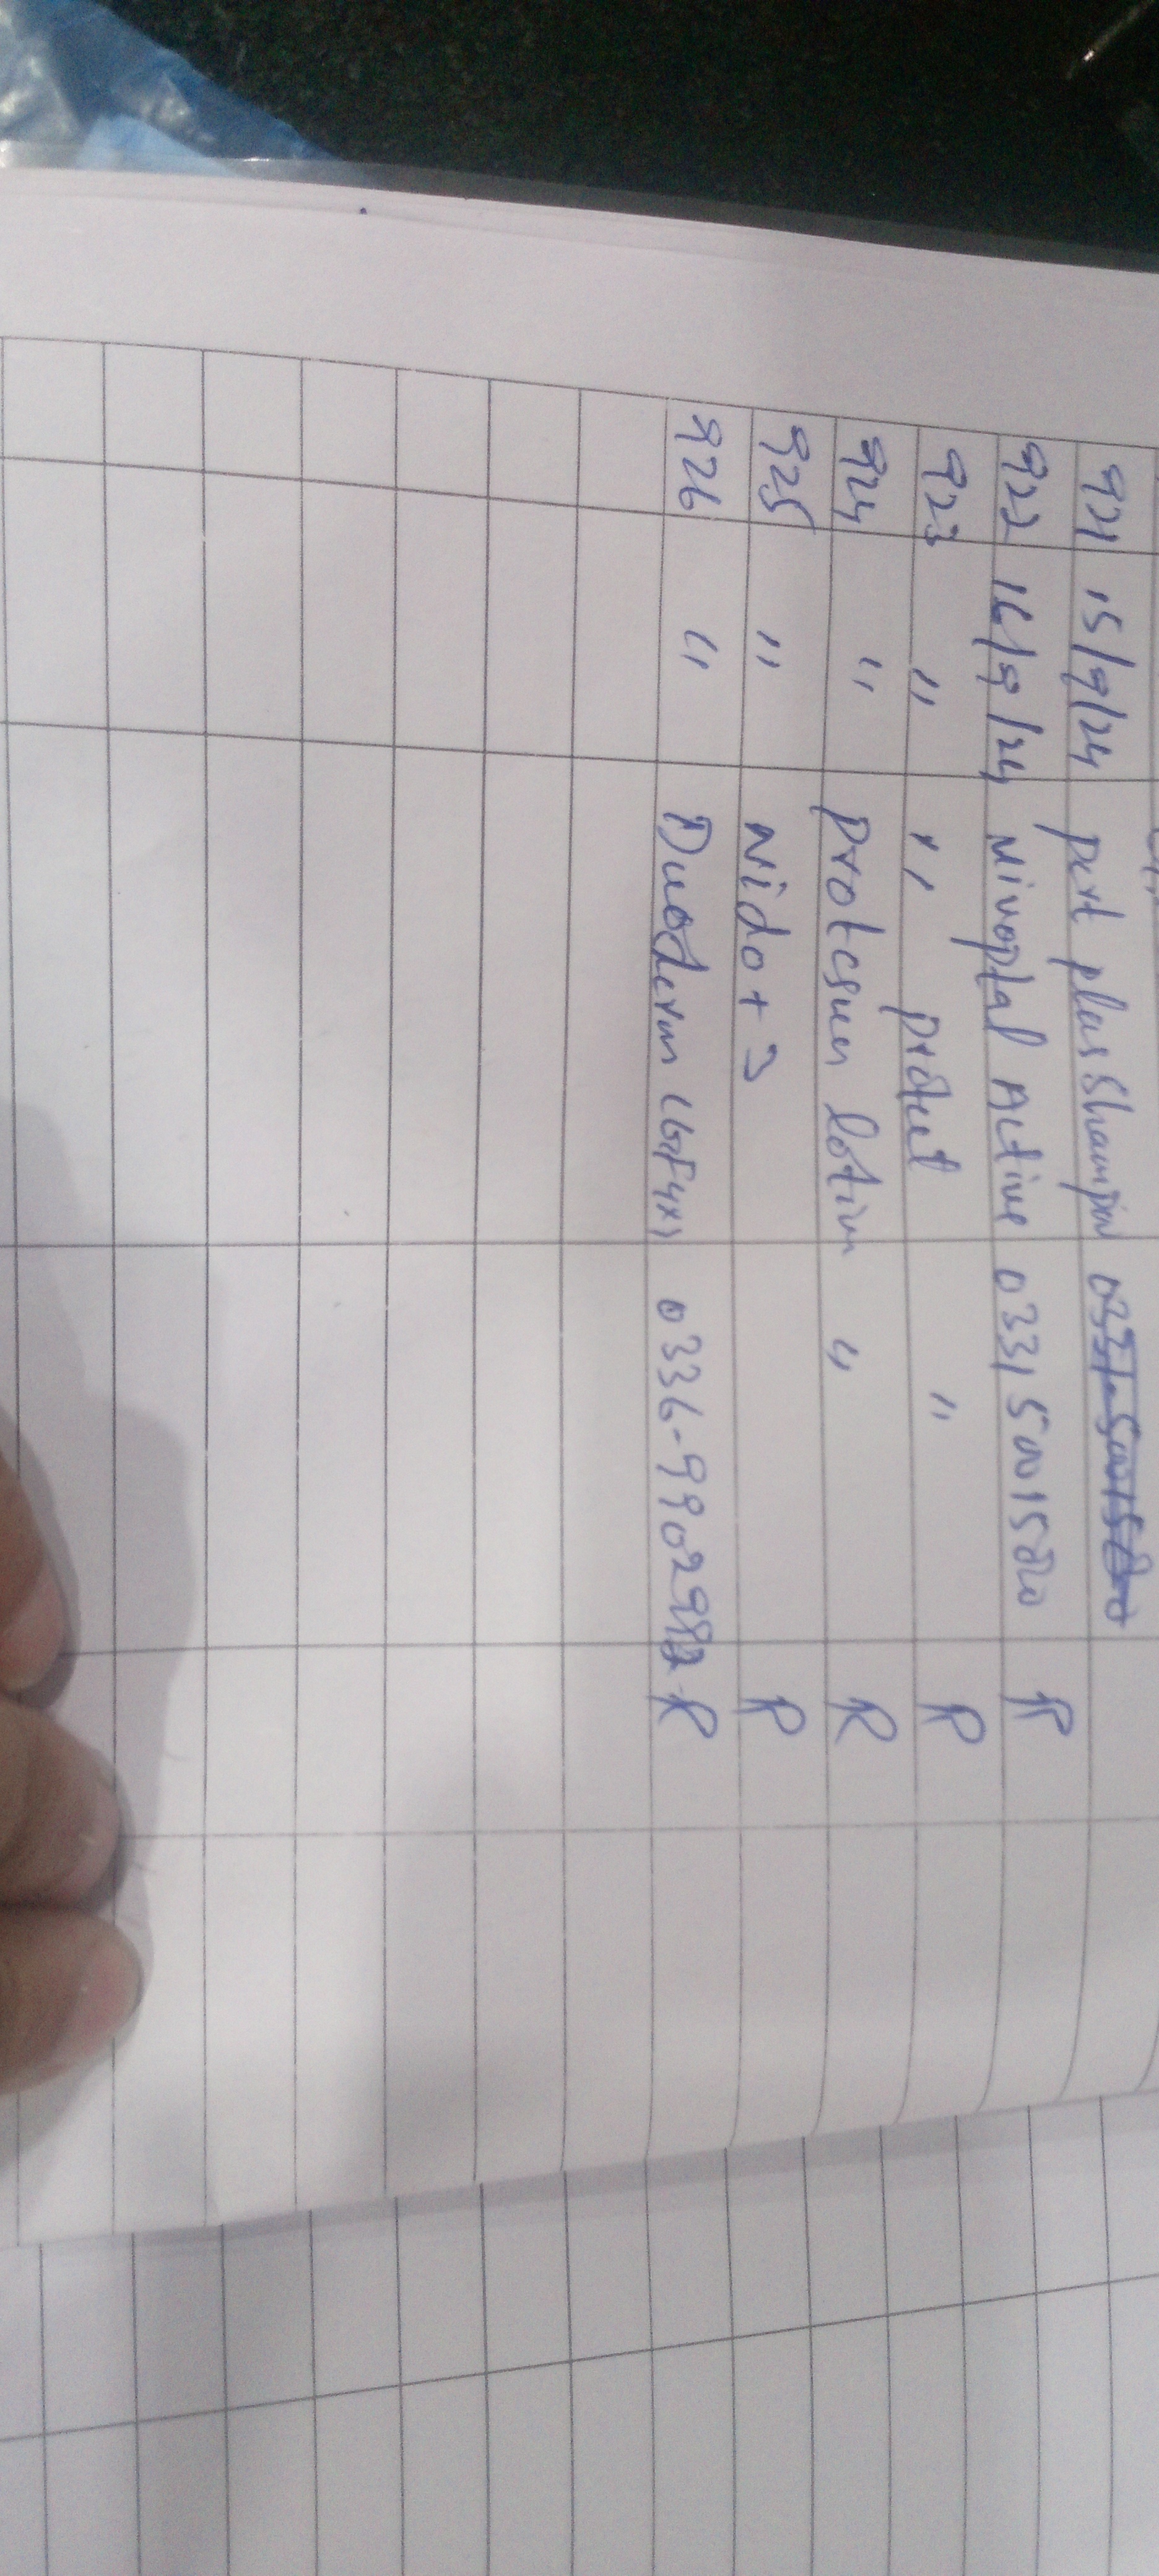 921 15/9/24 pert plus Shampoo
922 16/9/24 Nivoptal Active 03315001580 R
923 " " protect " R
924 " Protcsun lotion " R
925 " Nido + 3 R
926 " Duoderm 0336- R